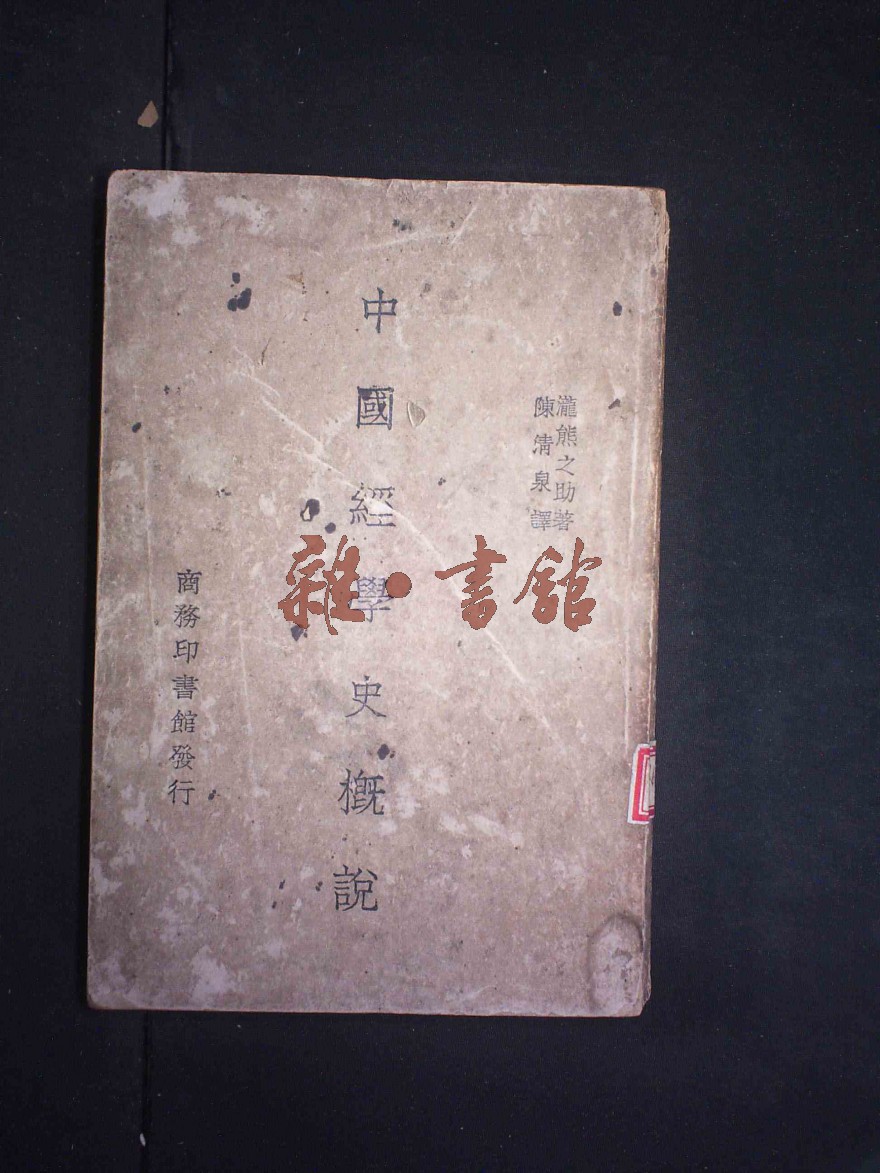 瀧熊之助著
陳清泉譯
中國經學史概說
商務印書館發行
雜·書館